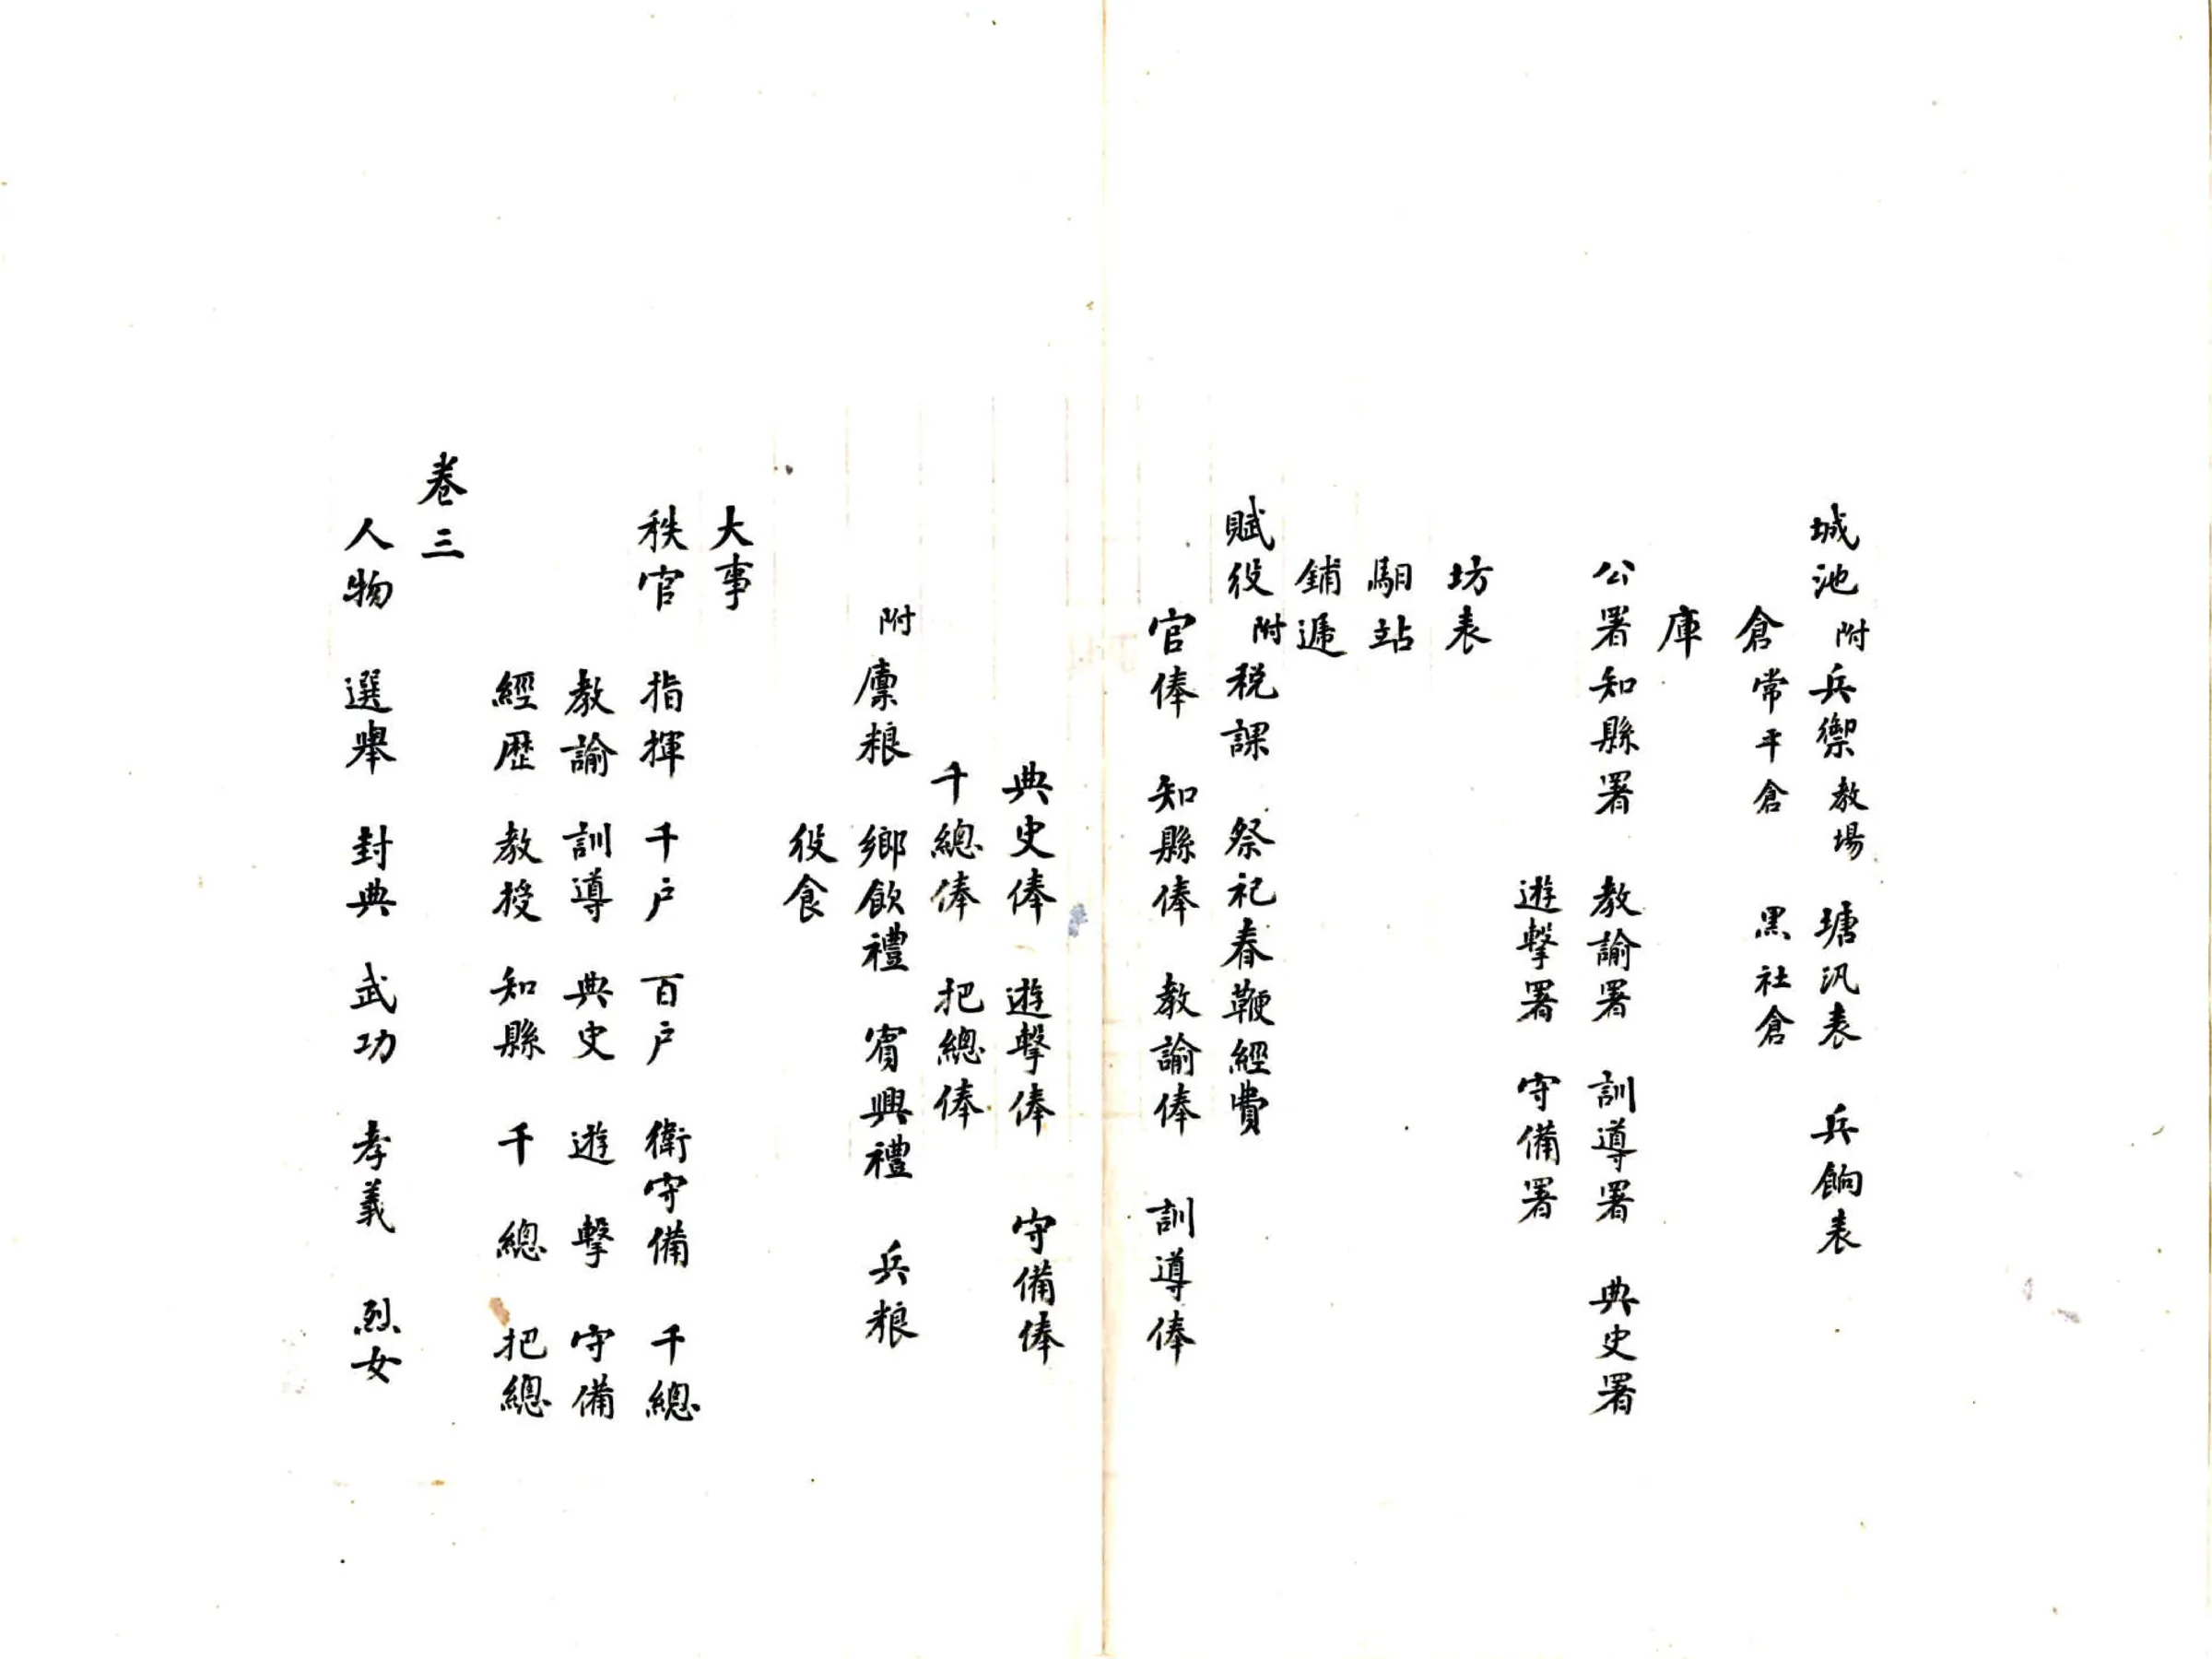 城池 附 兵禦 教場 塘汛表 兵餉表
倉 常平倉 黑社倉
庫
公署 知縣署 教諭署 訓導署 典史署
遊擊署 守備署
坊表
馹站
鋪遞
賦役 附 税課 祭祀春鞭經費
官俸 知縣俸 教諭俸 訓導俸
典史俸 遊擊俸 守備俸
千總俸 把總俸
附 廩粮 鄉飲禮 賓興禮 兵粮
役食
大事
秩官 指揮 千户 百户 衛守備 千總
教諭 訓導 典史 遊擊 守備
經歷 教授 知縣 千總 把總
卷三
人物 選舉 封典 武功 孝義 烈女